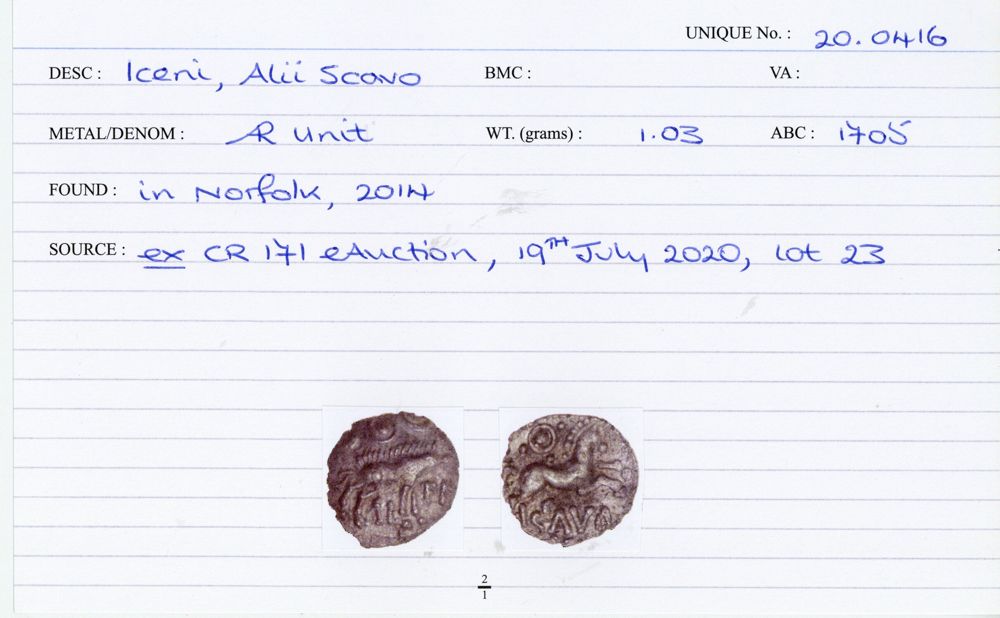 UNIQUE No. : 20.0416
DESC : Iceni, Alii Scavo BMC : VA :
METAL/DENOM : AR unit WT. (grams) : 1.03 ABC : 1705
FOUND : in Norfolk, 2014
SOURCE : ex CR 171 eAuction, 19TH July 2020, lot 23
SAV
2
1